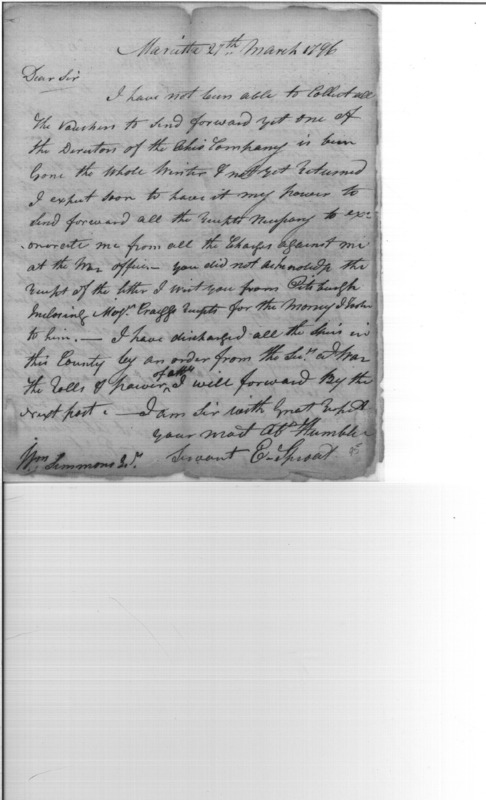 Marietta 27th March 1796
Dear Sir
I have not been able to Collect all
the Vouchers to Send forward yet one of
the Directors of the Ohio Company is been
Gone the whole Winter & not yet Returned
I expect Soon to have it my power to
Send forward all the Recepts Nessary to ex=
=onorate me from all the Charges against me
at the War office — you did not acknoledge the
Recept of the letter I wrist you from Pitsburgh
Inclosing Majr. Craiggs Recepts for the Money I
to him. — I have discharged all the Spies in
this County by an order from the Secy. at War
the Rolls & power of atty I will forward By the
Next post. — I am Sir with Great Respect
your most Obt. Humble
Wm Simmons Esqr. Servant E. Sproat